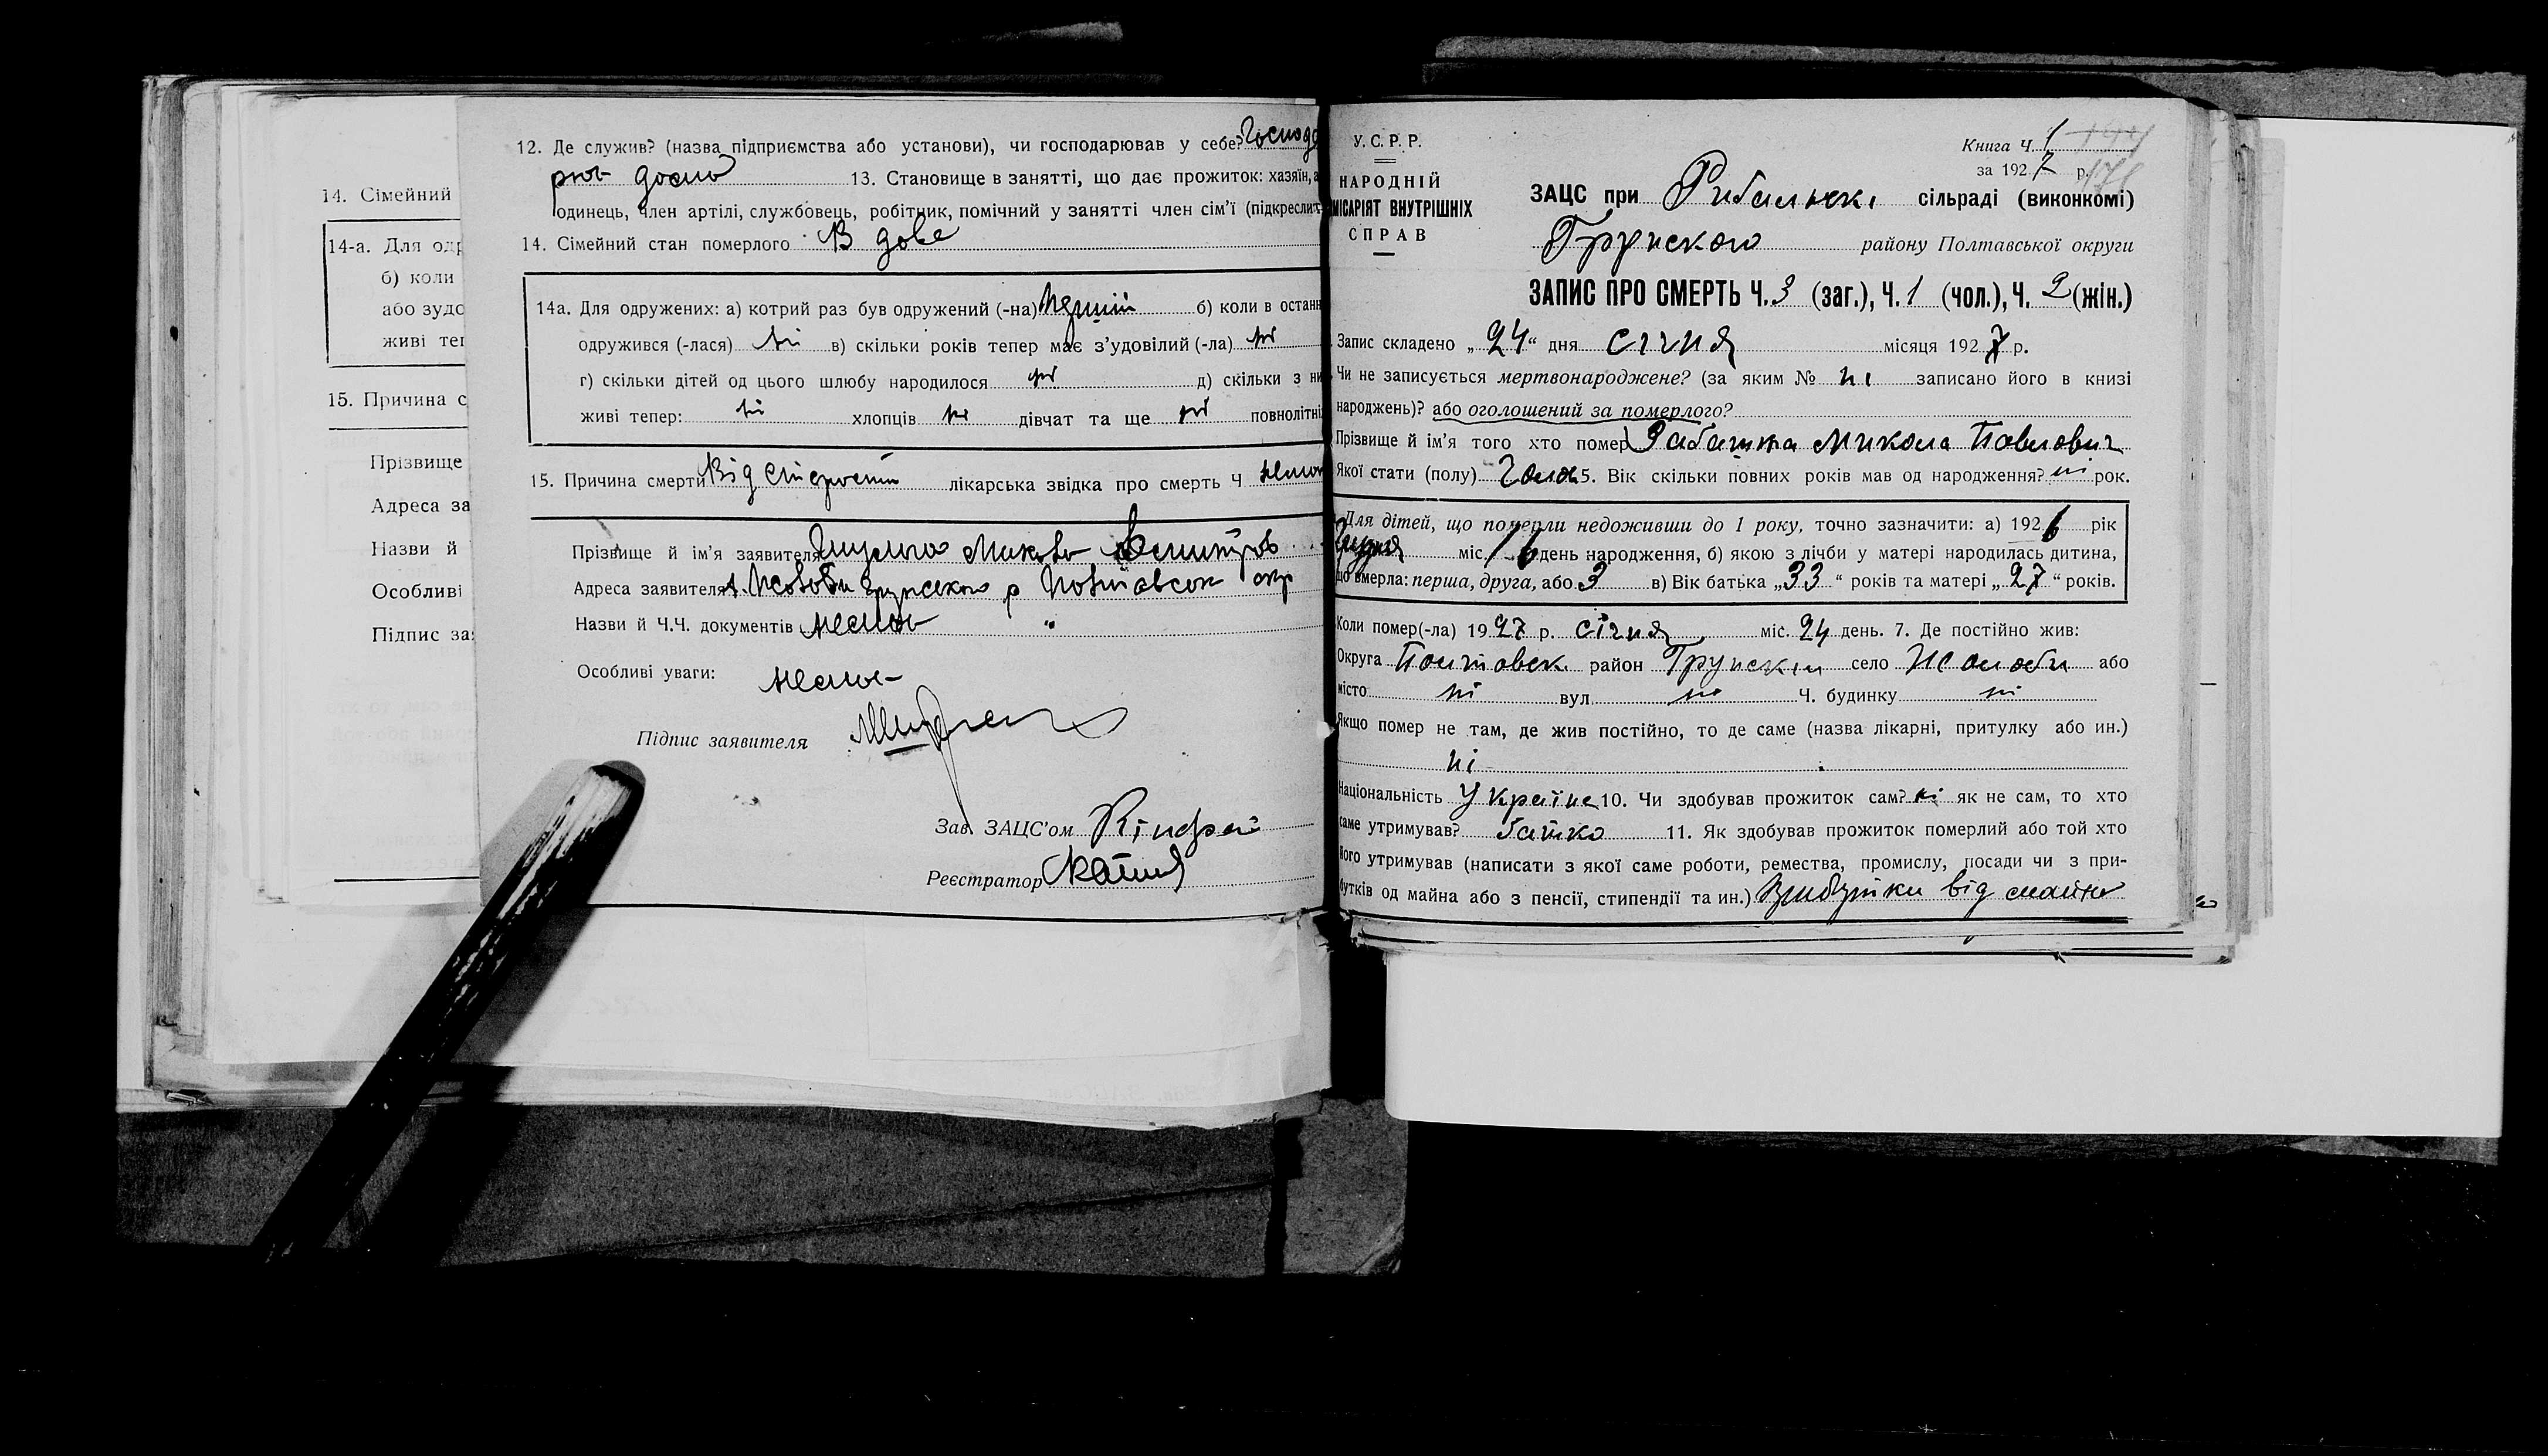 14. Сімейний
14-а. Для одр
б) коли
або зудо
живі теп
15. Причина с
Прізвище
Адреса за
Назви й
Особливі
Підпис за
12. Де служив? (назва підприємства або установи), чи господарював у себе? Господа
рює 13. Становище в занятті, що дає прожиток: хазяїн, а
одинець, член артілі, службовець, робітник, помічний у занятті член сім'ї (підкреслит
14. Сімейний стан померлого В дове
14а. Для одружених: а) котрий раз був одружений (-на) б) коли в останн
одружився (-лася) ні в) скільки років тепер має з'удовілий (-ла) ні
г) скільки дітей од цього шлюбу народилося ні д) скільки з ни
живі тепер: ні хлопців ні дівчат та ще ні повнолітні
15. Причина смерти Від старости лікарська звідка про смерть Ч немає
Прізвище й ім'я заявителя
Адреса заявителя Грунського р Полтавськ окр
Назви й Ч.Ч. документів немає "
Особливі уваги: немає
Підпис заявителя
Зав. ЗАЦС'ом
Реєстратор
У.С.Р.Р.
НАРОДНІЙ
МІСАРІЯТ ВНУТРІШНІХ
СПРАВ
Книга Ч. 1
за 1927 р.
ЗАЦС при Рибальські сільраді (виконкомі)
Грунского району Полтавської округи
ЗАПИС ПРО СМЕРТЬ Ч. 3 (заг.), Ч. 1 (чол.), Ч. 2 (жін.)
Запис складено „24“ дня січня місяця 1927 р.
Чи не записується мертвонароджене? (за яким № ні записано його в книзі
народжень)? або оголошений за померлого?
Прізвище й ім'я того хто помер Забашта Микола Павлович
Якої стати (полу) Чолов 5. Вік скільки повних років мав од народження? ні рок.
Для дітей, що померли недоживши до 1 року, точно зазначити: а) 1926 рік
Грудня міс. 16 день народження, б) якою з лічби у матері народилась дитина,
що вмерла: перша, друга, або 3 в) Вік батька „33“ років та матері „27“ років.
Коли помер(-ла) 1927 р. січня міс. 24 день. 7. Де постійно жив:
Округа Полтавськ. район Грунськім село або
місто ні вул ні Ч. будинку ні
Якщо помер не там, де жив постійно, то де саме (назва лікарні, притулку або ин.)
ні
Національність Україне 10. Чи здобував прожиток сам? ні як не сам, то хто
саме утримував? батько 11. Як здобував прожиток померлий або той хто
його утримував (написати з якої саме роботи, ремества, промислу, посади чи з при-
бутків од майна або з пенсії, стипендії та ин.) Прибутки від майна